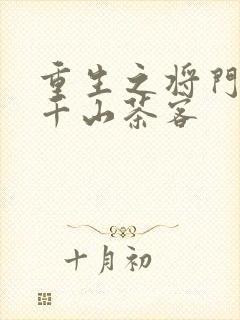 重生之将门
千山茶客
十月初